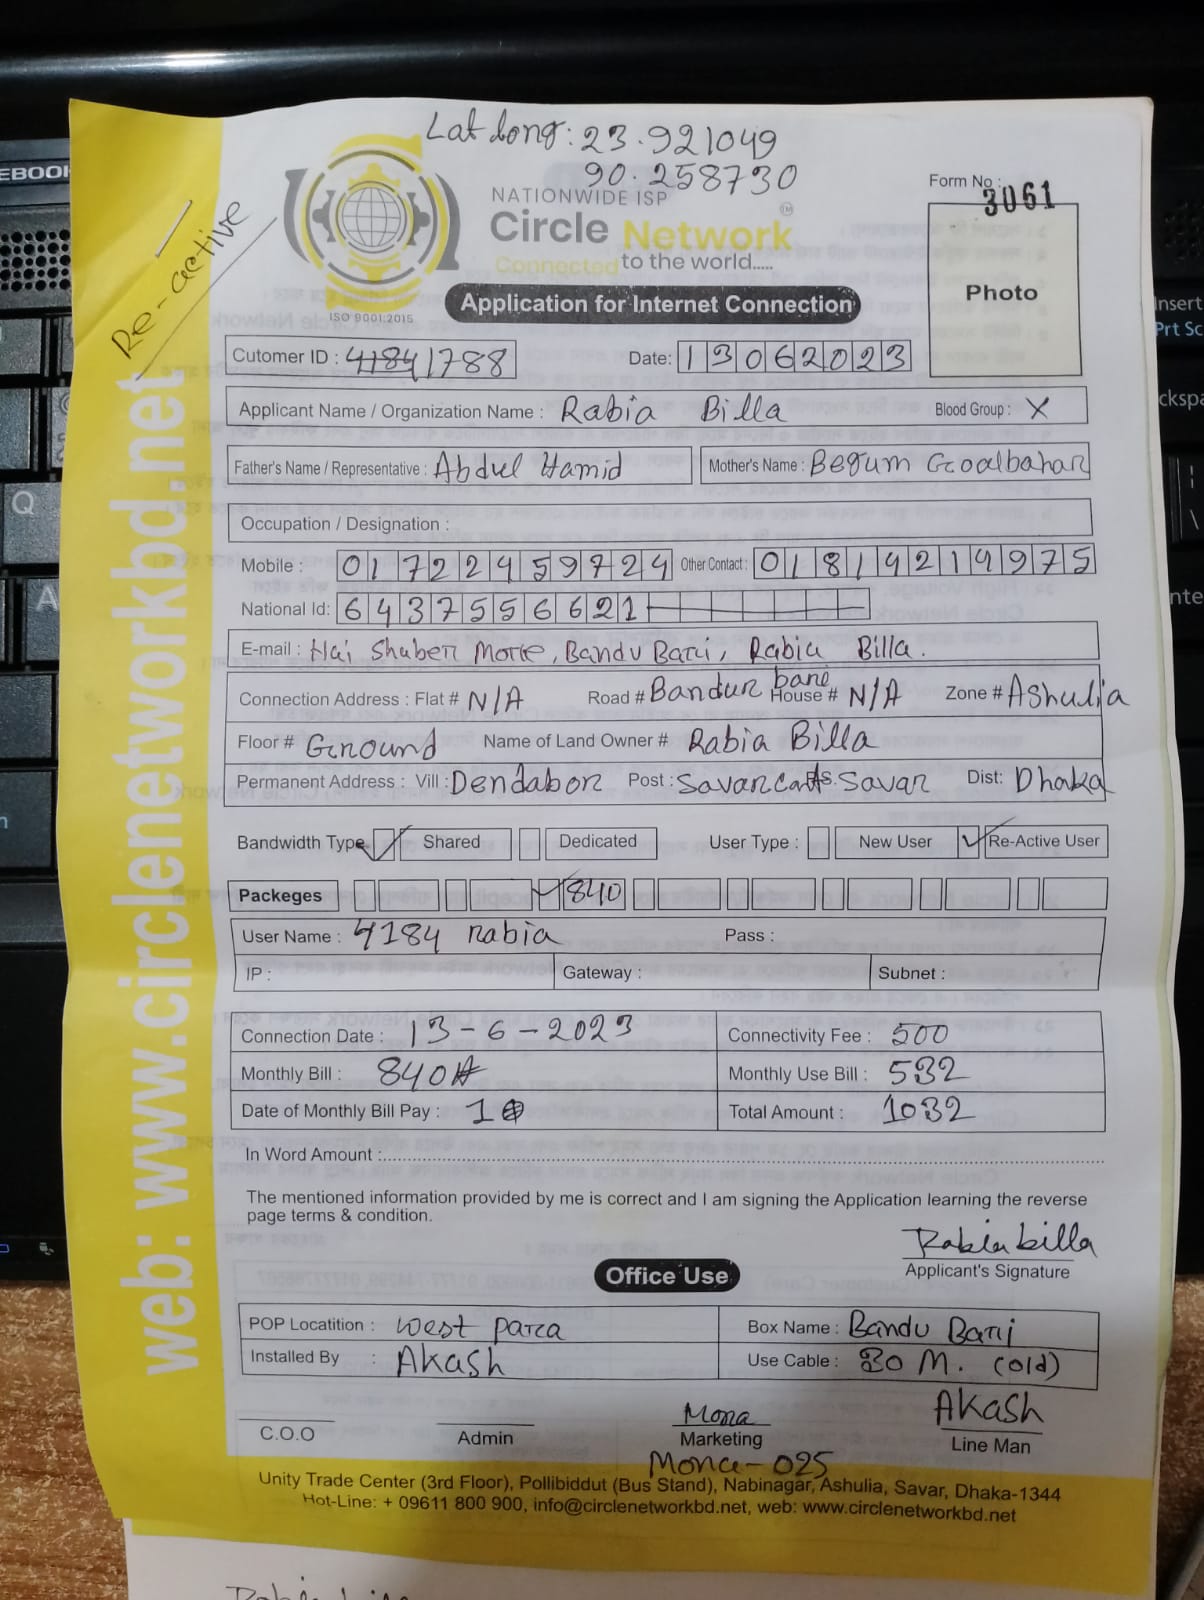 Lat long: 23.921049
90.258730
Re-active
NATIONWIDE ISP
Circle Network
TM
Connected to the world.....
ISO 9001:2015
Form No : 3061
Photo
Application for Internet Connection
Cutomer ID : 41841788
Date: 13062023
Applicant Name / Organization Name : Rabia Billa Blood Group : X
Father's Name / Representative : Abdul Hamid Mother's Name : Begum Goolbahar
Occupation / Designation :
Mobile : 01722459724 Other Contact : 01819214975
National Id: 6437556621
E-mail : Hai Shaber More, Bandu Bari, Rabia Billa.
Connection Address : Flat # N/A Road # Bandur bane House # N/A Zone # Ashulia
Floor # Ground Name of Land Owner # Rabia Billa
Permanent Address : Vill : Dendabor Post : Savarcantt Ps. Savar Dist: Dhaka
Bandwidth Type Shared Dedicated User Type : New User Re-Active User
Packeges 840
User Name : 4184 rabia Pass :
IP : Gateway : Subnet :
Connection Date : 13-6-2023 Connectivity Fee : 500
Monthly Bill : 840 Monthly Use Bill : 532
Date of Monthly Bill Pay : 1 Total Amount : 1032
In Word Amount :
The mentioned information provided by me is correct and I am signing the Application learning the reverse
page terms & condition.
Rabia billa
Applicant's Signature
Office Use
POP Locatition : West para Box Name : Bandu Bari
Installed By : Akash Use Cable : 30 M. (old)
Mona AKash
C.O.O Admin Marketing Line Man
Mona-025
Unity Trade Center (3rd Floor), Pollibiddut (Bus Stand), Nabinagar, Ashulia, Savar, Dhaka-1344
Hot-Line: + 09611 800 900, info@circlenetworkbd.net, web: www.circlenetworkbd.net
web: www.circlenetworkbd.net